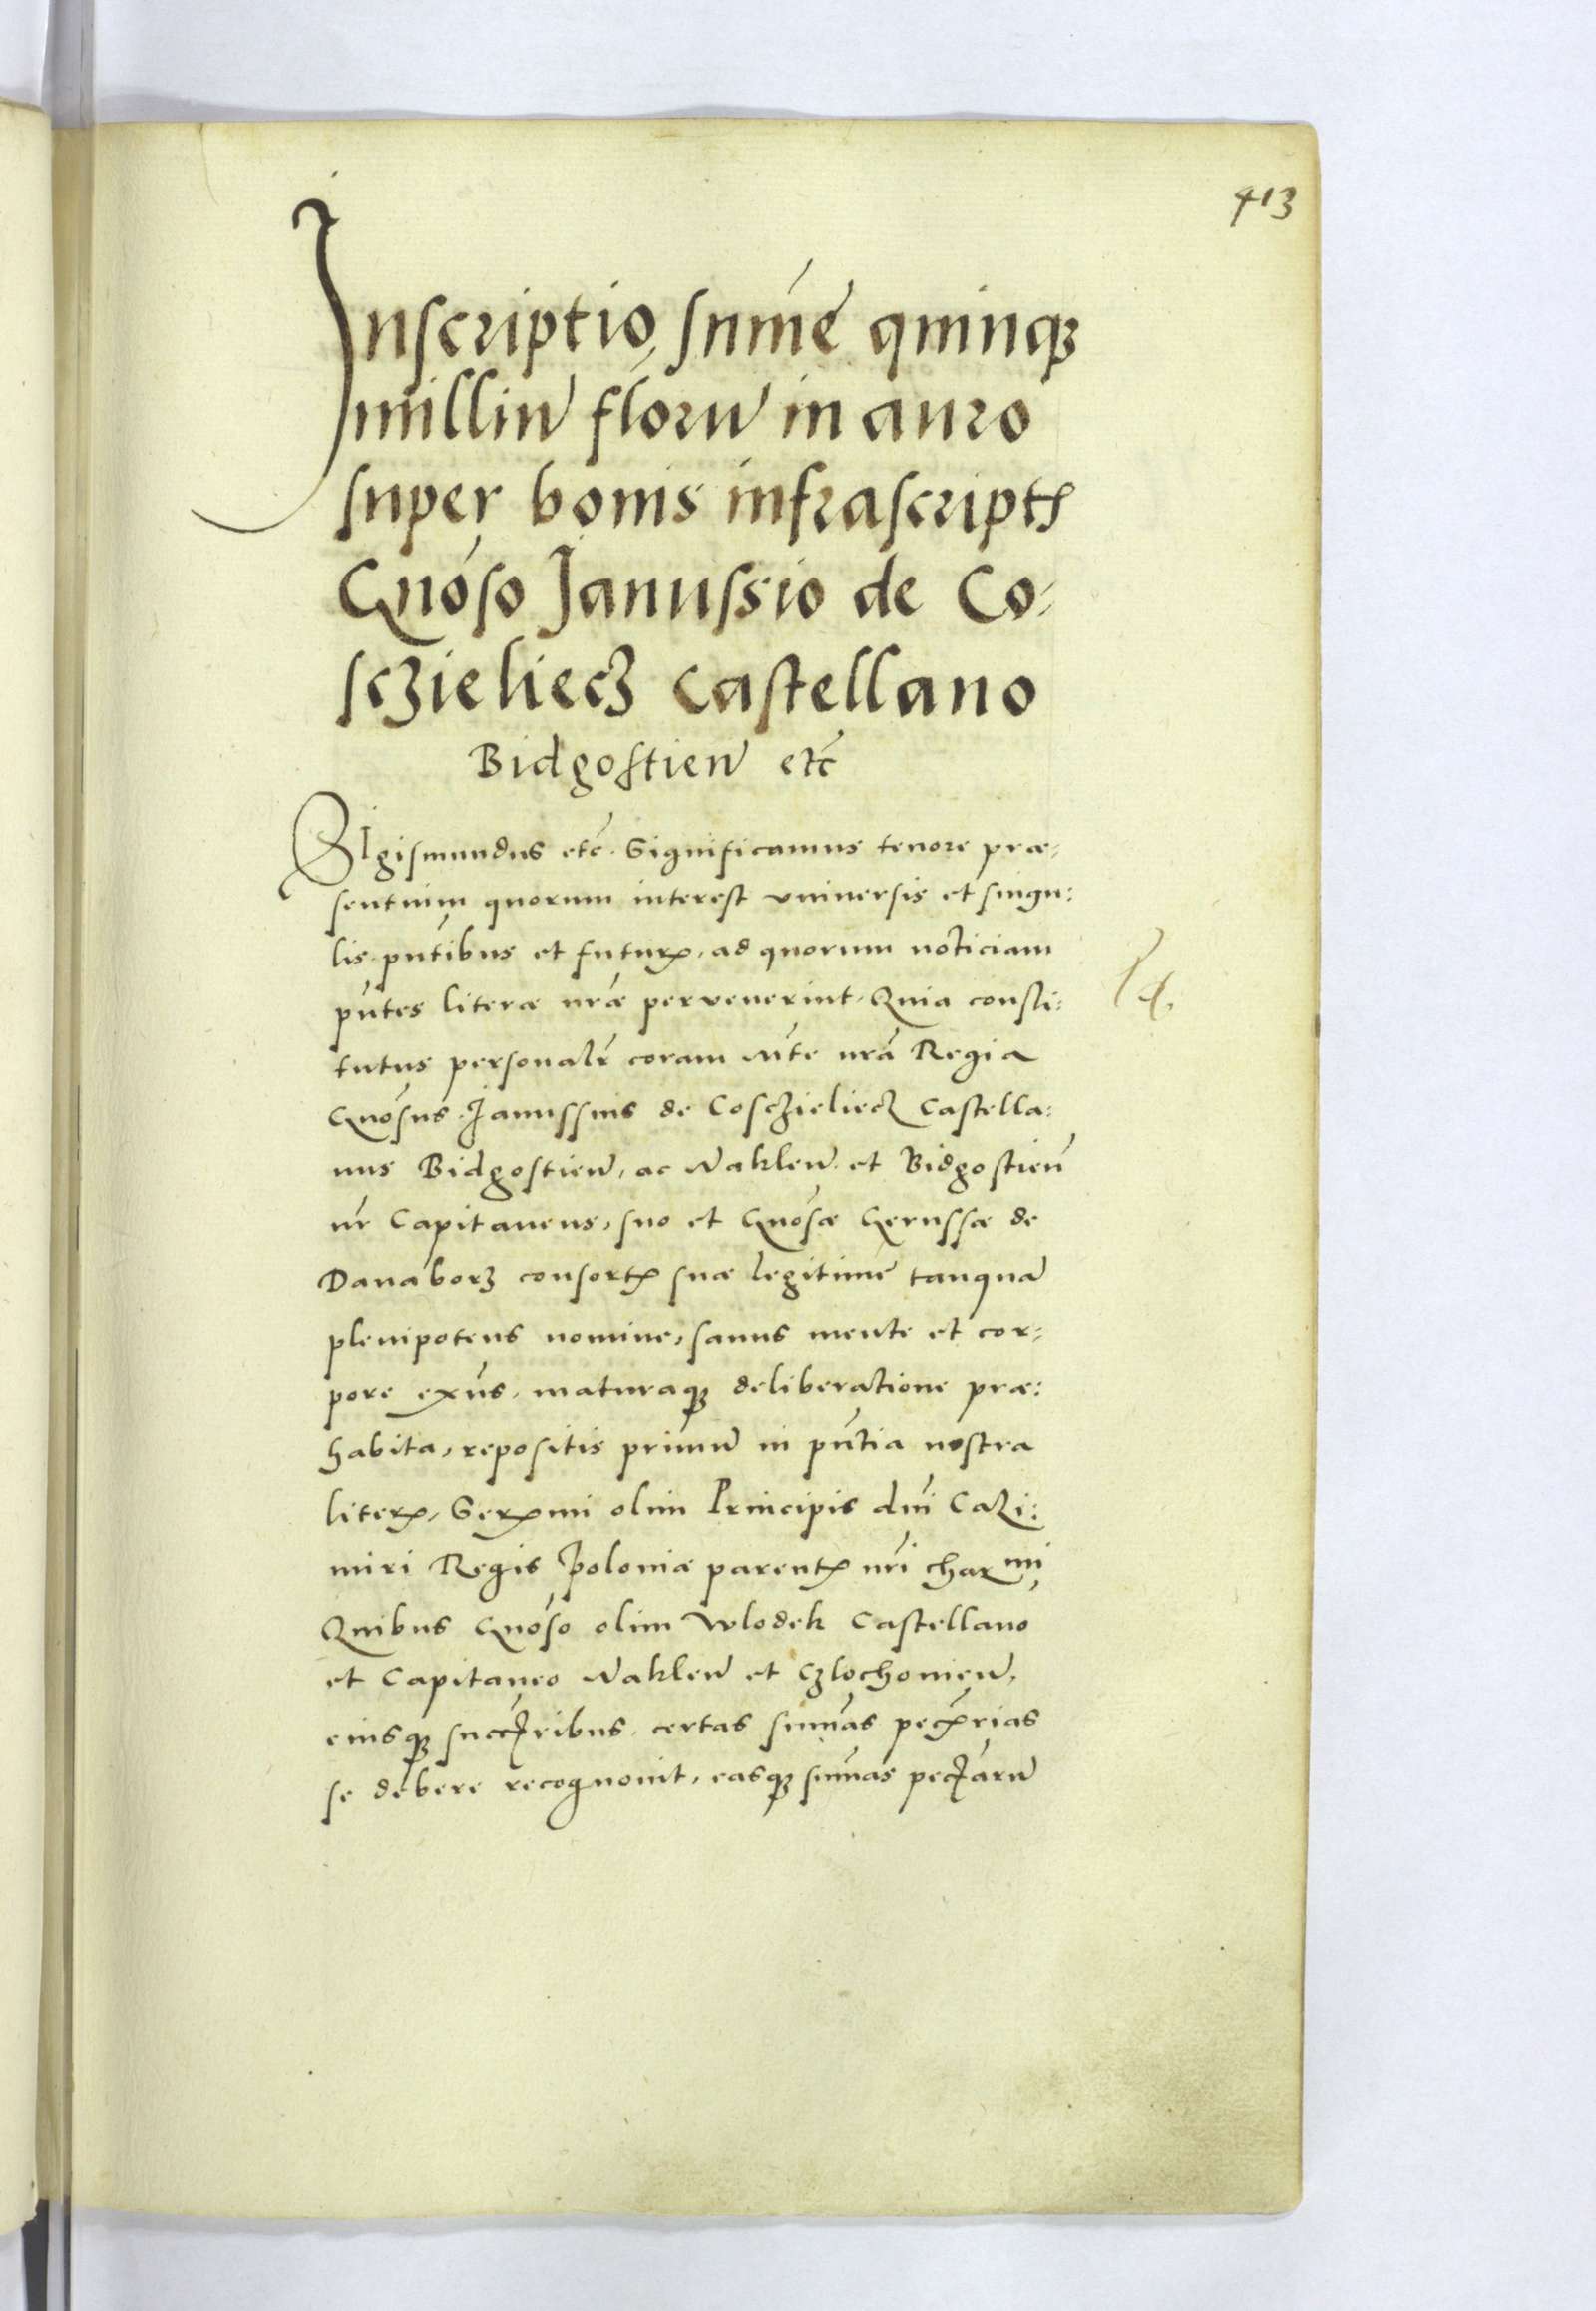 413
Inscriptio sum̃e quinqꝫ
milliũ floꝛũ in auro
super bonis infrascriptꝭ
Gnõso Janussio de Co-
sczieliecz Castellano
Bidgostień etc̃
SIgismundus etc̃. Significamus tenore præ-
sentium quorum interest vniuersis et singu:
lis pñtibus et futurꝭ, ad quorum noticiam
pñtes literæ nr̃æ pervenerint. Quia consti:
tutus personalr̃ coram Mte nr̃a Regia
Gnõsus Janussius de Cosczieliecz Castella:
nus Bidgostień, ac Nakleń et Bidgostień
nr̃ Capitaneus, suo et Gnõsæ Gerussæ de
Danaborz consortꝭ suæ legitimæ tanquã
plenipotens nomine, sanus mente et cor-
pore exñs, maturaqꝫ deliberatione præ:
habita, repositis primũ in pñtia nostra
literꝭ, Serꝭmi olim Principis dñi Cazi:
miri Regis Poloniæ parentꝭ nr̃i charmi
Quibus Gnõso olim Wlodek Castellano
et Capitaneo Nakleń et Czlochonień,
eiusqꝫ succꝭribus, certas sum̃as pecꝭrias
se debere recognouit, easqꝫ sum̃as pecꝭarũ